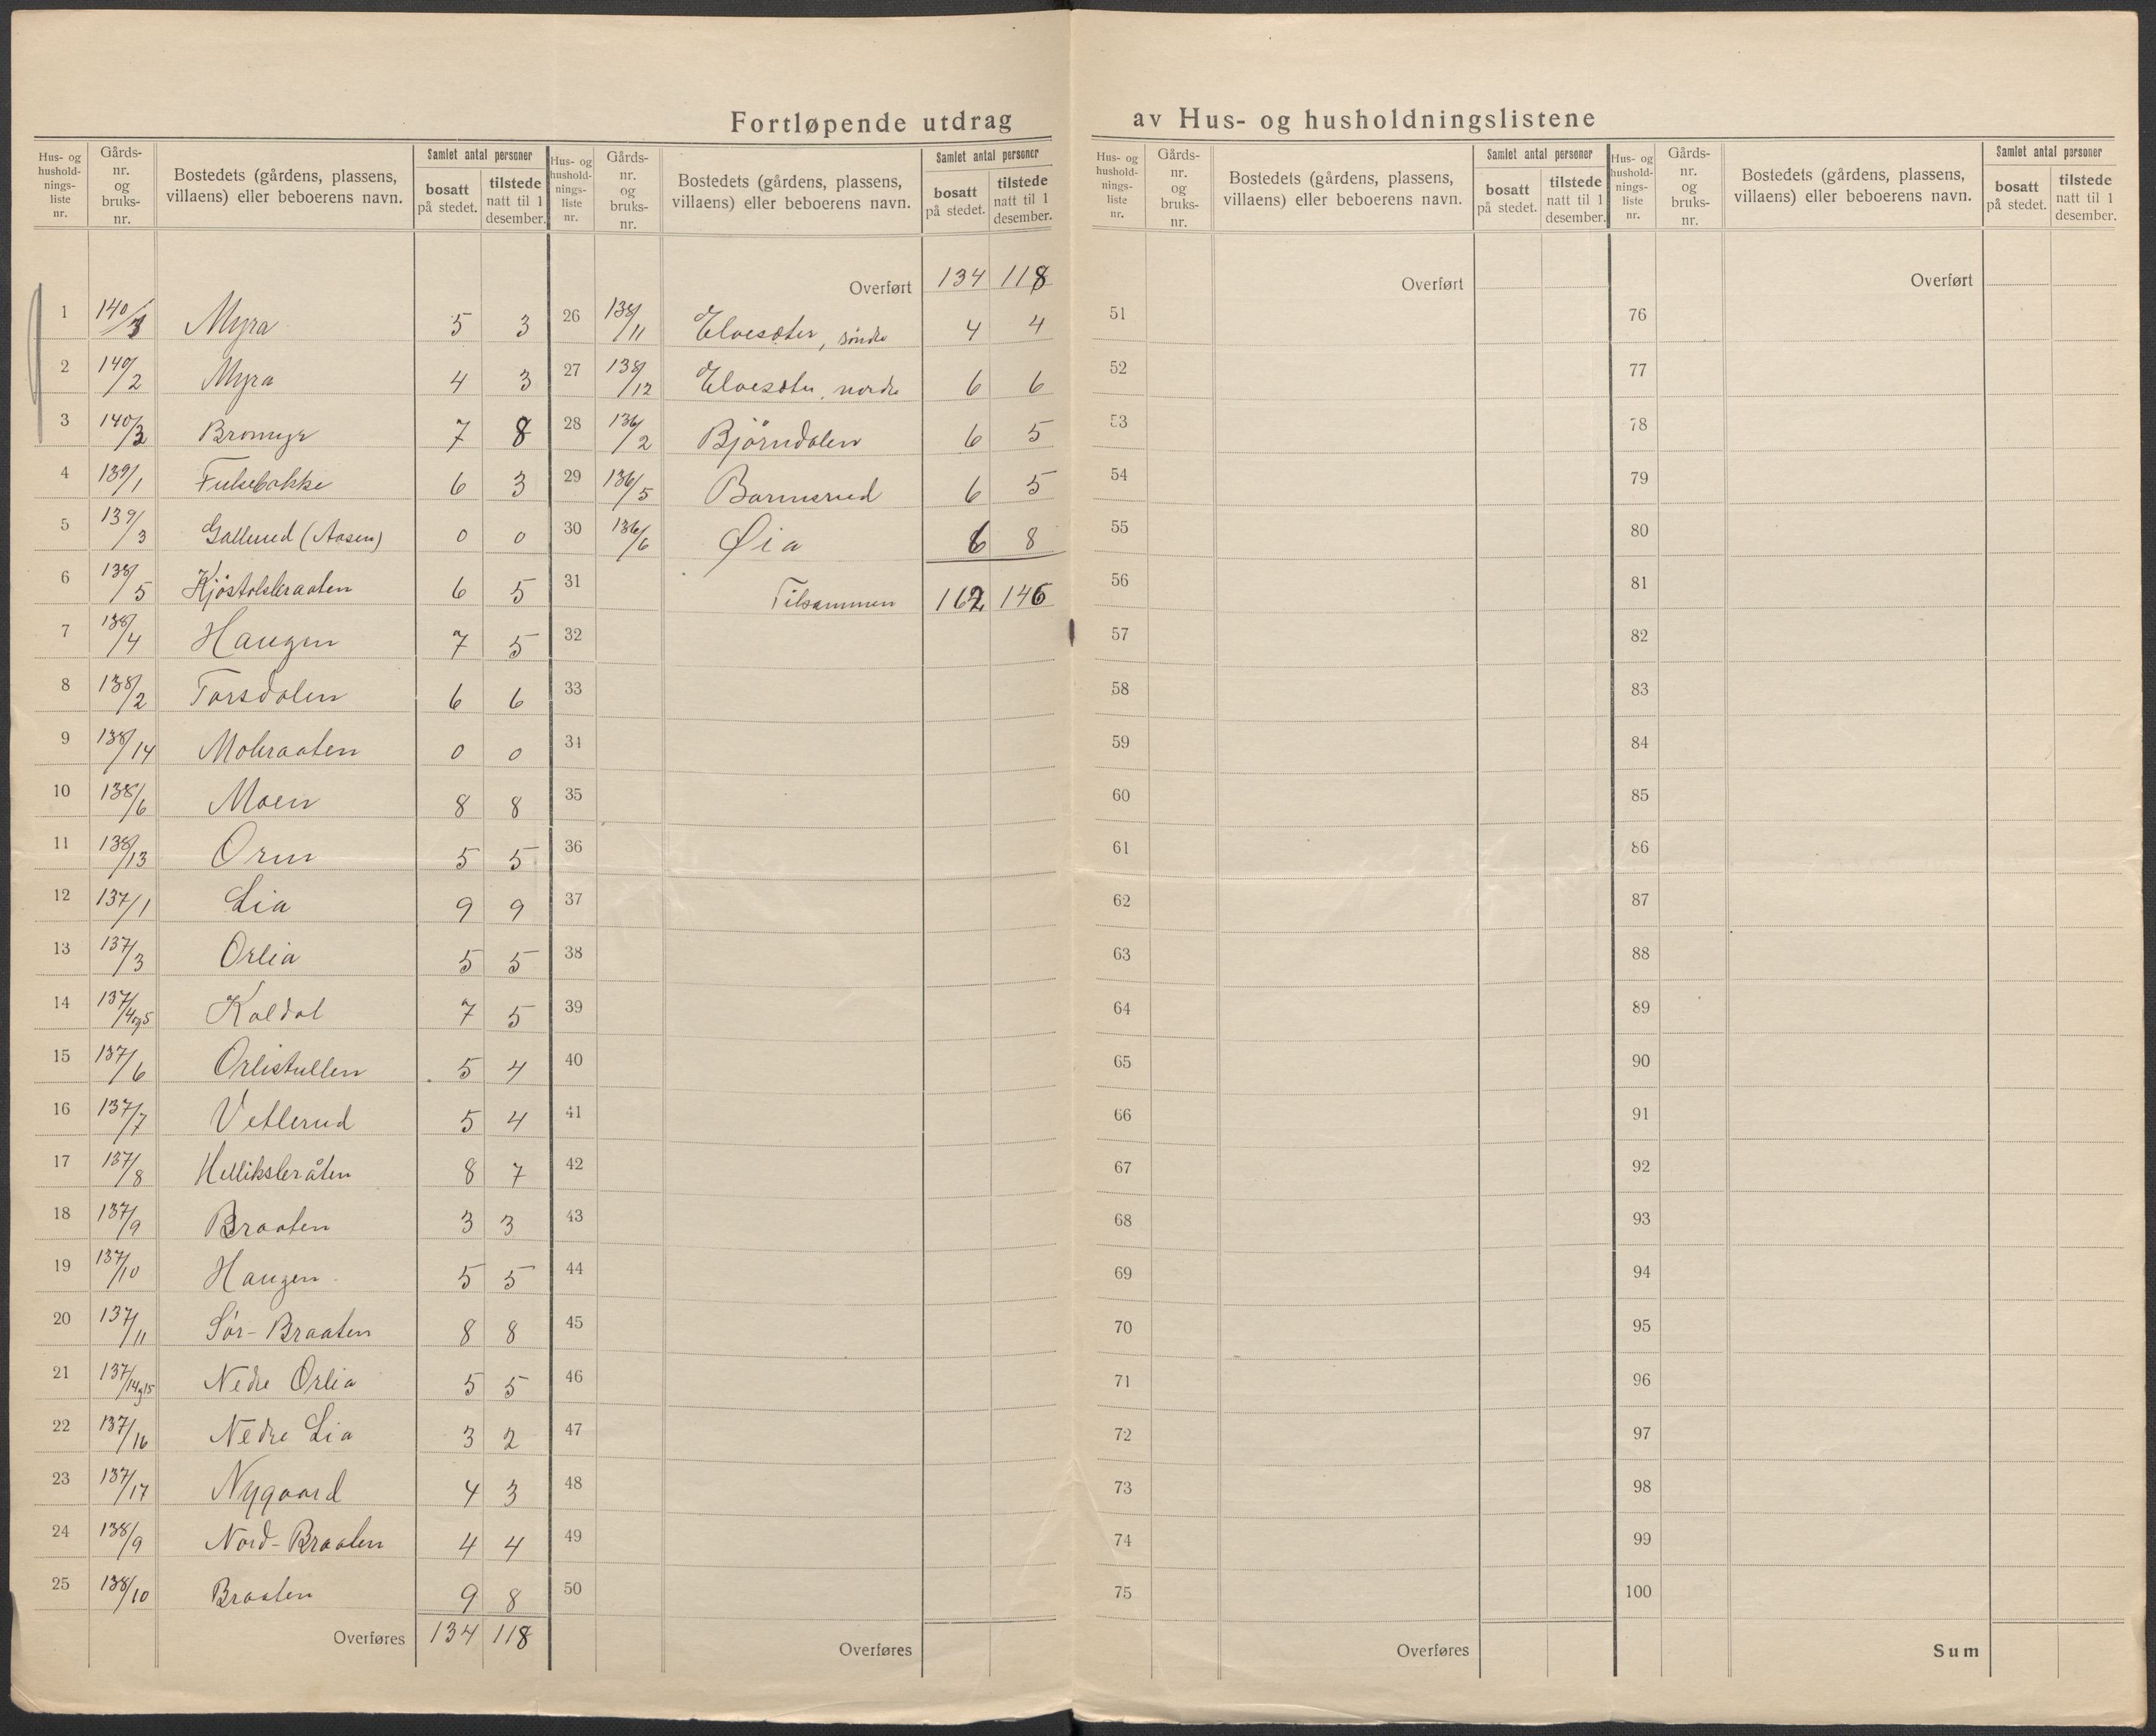 Fortløpende utdrag av Hus- og husholdningslistene
Hus- og hushold-nings-liste nr. Gårds-nr. og bruks-nr. Bostedets (gårdens, plassens, villaens) eller beboerens navn. Samlet antal personer bosatt på stedet. tilstede natt til 1 desember.
1 140/3 Myra 5 3
2 140/2 Myra 4 3
3 140/3 Bromyr 7 8
4 139/1 Fulsebakke 6 3
5 139/3 Gallerud (Aasen) 0 0
6 138/5 Kjøstolsbraaten 6 5
7 138/4 Haugen 7 5
8 138/2 Torsdalen 6 6
9 138/14 Mobraaten 0 0
10 138/6 Moen 8 8
11 138/13 Orm 5 5
12 137/1 Lia 9 9
13 137/3 Orlia 5 5
14 137/4og5 Koldal 7 5
15 137/6 Orlistullen 5 4
16 137/7 Vetlerud 5 4
17 137/8 Helliksbråten 8 7
18 137/9 Braaten 3 3
19 137/10 Haugen 5 5
20 137/11 Sør-Braaten 8 8
21 137/14og15 Nedre Orlia 5 5
22 137/16 Nedre Lia 3 2
23 137/17 Nygaard 4 3
24 138/9 Nord-Braaten 4 4
25 138/10 Braaten 9 8
Overføres 134 118
Hus- og hushold-nings-liste nr. Gårds-nr. og bruks-nr. Bostedets (gårdens, plassens, villaens) eller beboerens navn. Samlet antal personer bosatt på stedet. tilstede natt til 1 desember.
Overført 134 118
26 138/11 Elvesæter, søndre 4 4
27 138/12 Elvesæter, nordre 6 6
28 136/2 Bjørndalen 6 5
29 136/5 Barmsrud 6 5
30 136/6 Øia 6 8
31 Tilsammen 162 146
32
33
34
35
36
37
38
39
40
41
42
43
44
45
46
47
48
49
50
Overføres
Hus- og hushold-nings-liste nr. Gårds-nr. og bruks-nr. Bostedets (gårdens, plassens, villaens) eller beboerens navn. Samlet antal personer bosatt på stedet. tilstede natt til 1 desember.
Overført
51
52
53
54
55
56
57
58
59
60
61
62
63
64
65
66
67
68
69
70
71
72
73
74
75
Overføres
Hus- og hushold-nings-liste nr. Gårds-nr. og bruks-nr. Bostedets (gårdens, plassens, villaens) eller beboerens navn. Samlet antal personer bosatt på stedet. tilstede natt til 1 desember.
Overført
76
77
78
79
80
81
82
83
84
85
86
87
88
89
90
91
92
93
94
95
96
97
98
99
100
Sum